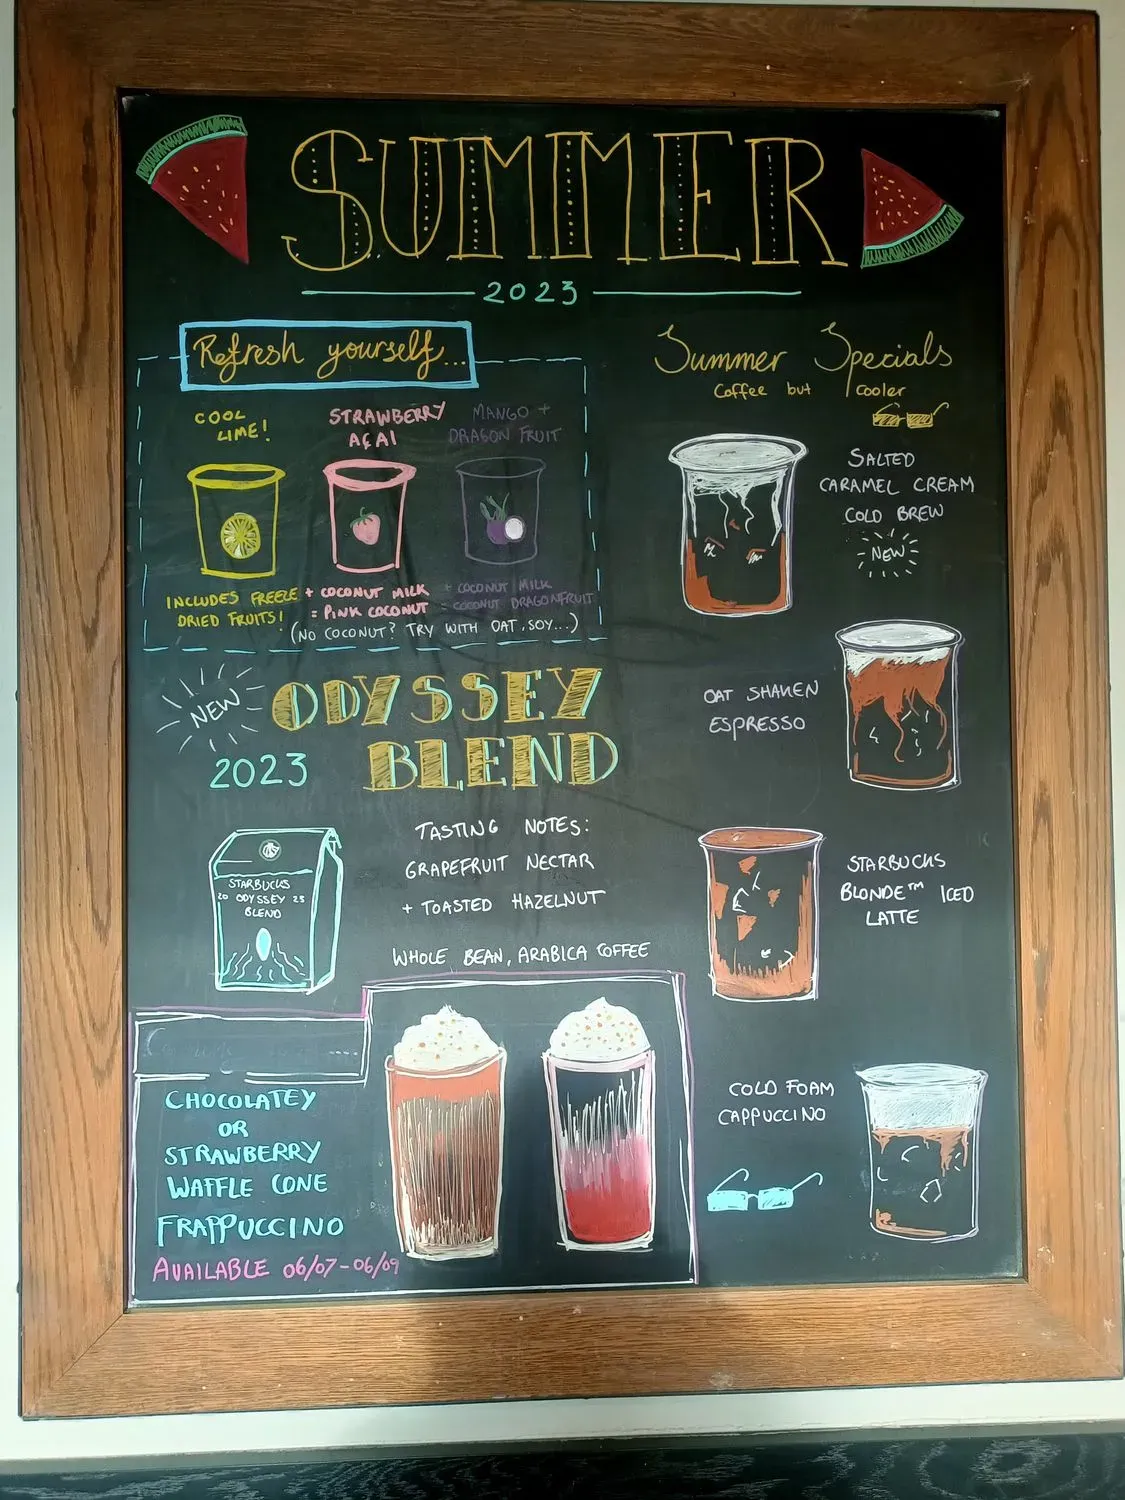 SUMMER
2023
Refresh yourself...
COOL
LIME!
STRAWBERRY
AÇAI
MANGO +
DRAGON FRUIT
INCLUDES FREEZE
DRIED FRUITS!
+ COCONUT MILK
= PINK COCONUT
+ COCONUT MILK
= COCONUT DRAGONFRUIT
(NO COCONUT? TRY WITH OAT, SOY...)
NEW
ODYSSEY
2023
BLEND
STARBUCKS
20 ODYSSEY 23
BLEND
TASTING NOTES:
GRAPEFRUIT NECTAR
+ TOASTED HAZELNUT
WHOLE BEAN, ARABICA COFFEE
CHOCOLATEY
OR
STRAWBERRY
WAFFLE CONE
FRAPPUCCINO
AVAILABLE 06/07-06/09
Summer Specials
Coffee but cooler
SALTED
CARAMEL CREAM
COLD BREW
NEW
OAT SHAKEN
ESPRESSO
STARBUCKS
BLONDE™ ICED
LATTE
COLD FOAM
CAPPUCCINO